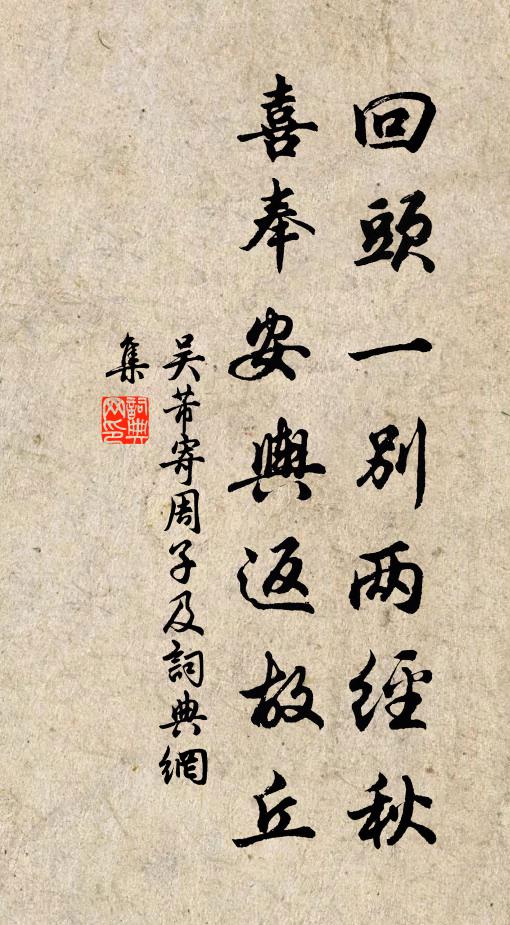 回頭一別两經秋
喜奉安輿返故丘
吴芾寄周子及詞典網
集
詞典網印